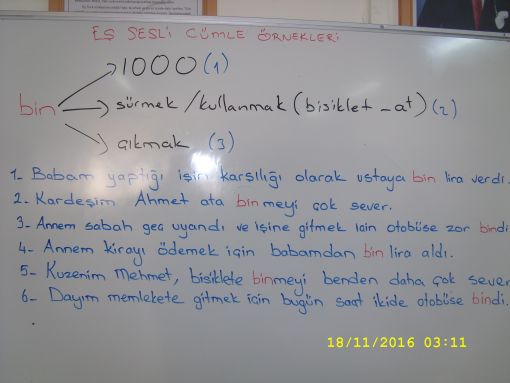 EŞ SESLİ CÜMLE ÖRNEKLERİ
1000 (1)
bin
sürmek/kullanmak (bisiklet - at) (2)
çıkmak (3)
1- Babam yaptığı işin karşılığı olarak ustaya bin lira verdi.
2- Kardeşim Ahmet ata binmeyi çok sever.
3- Annem sabah geç uyandı ve işine gitmek için otobüse zor bindi
4- Annem kirayı ödemek için babamdan bin lira aldı.
5- Kuzenim Mehmet, bisiklete binmeyi benden daha çok sever
6- Dayım memlekete gitmek için bugün saat ikide otobüse bindi.
18/11/2016 03:11